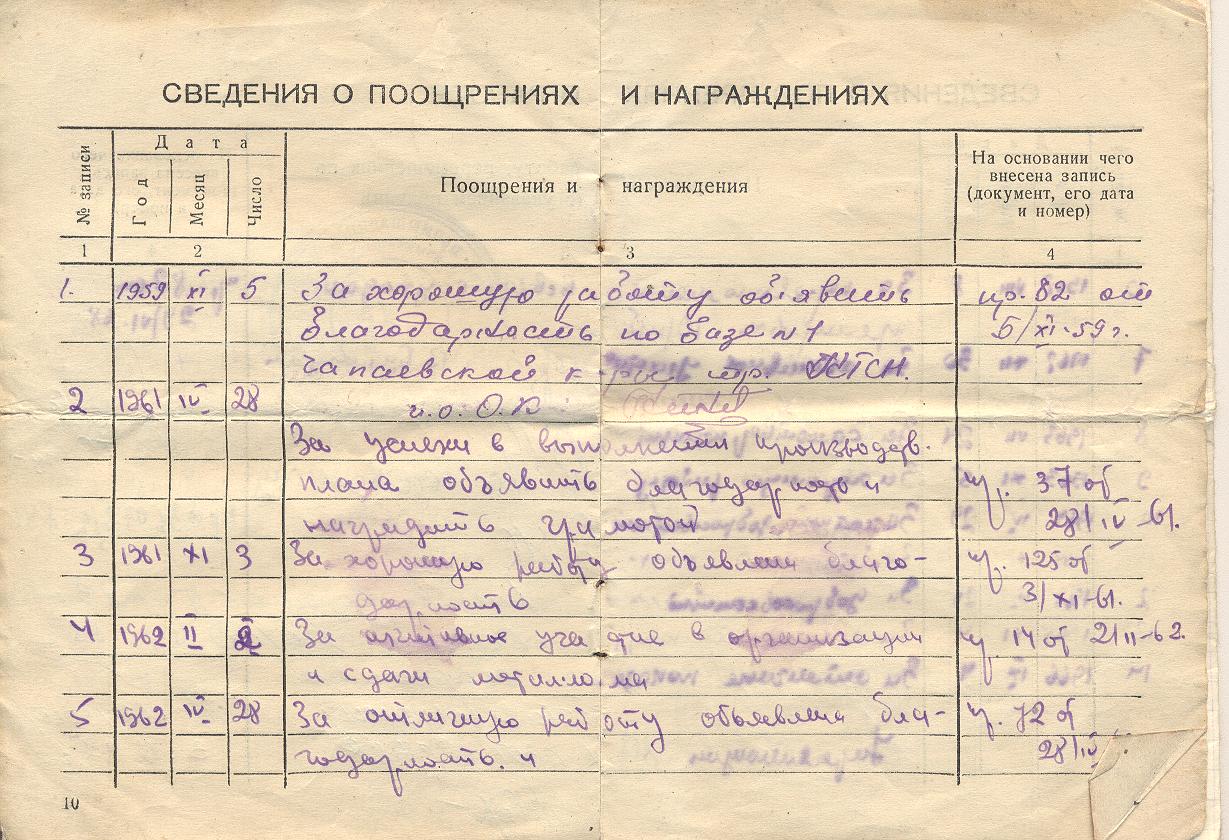 СВЕДЕНИЯ О ПООЩРЕНИЯХ И НАГРАЖДЕНИЯХ
№ записи
Дата
Год
Месяц
Число
Поощрения и награждения
На основании чего
внесена запись
(документ, его дата
и номер)
1 2 3 4
1. 1959 XI 5 За хорошую работу объявить пр. 82 от
благодарность по базе №1 5/XI-59г.
Чапаевской тр.
2 1961 IV 28 и.о. О.К.
За успехи в выполнении производств.
плана объявить благодарность и пр. 37 от
наградить грамотой 28/IV-61.
3 1961 XI 3 За хорошую работу объявлена благо- пр. 125 от
дарность 3/XI-61.
4 1962 II 2 За активное участие в организации пр. 14 от 2/II-62.
и сдачи металлолома
5 1962 IV 28 За отличную работу объявлена бла- пр. 72 от
годарность. и 28/IV
10